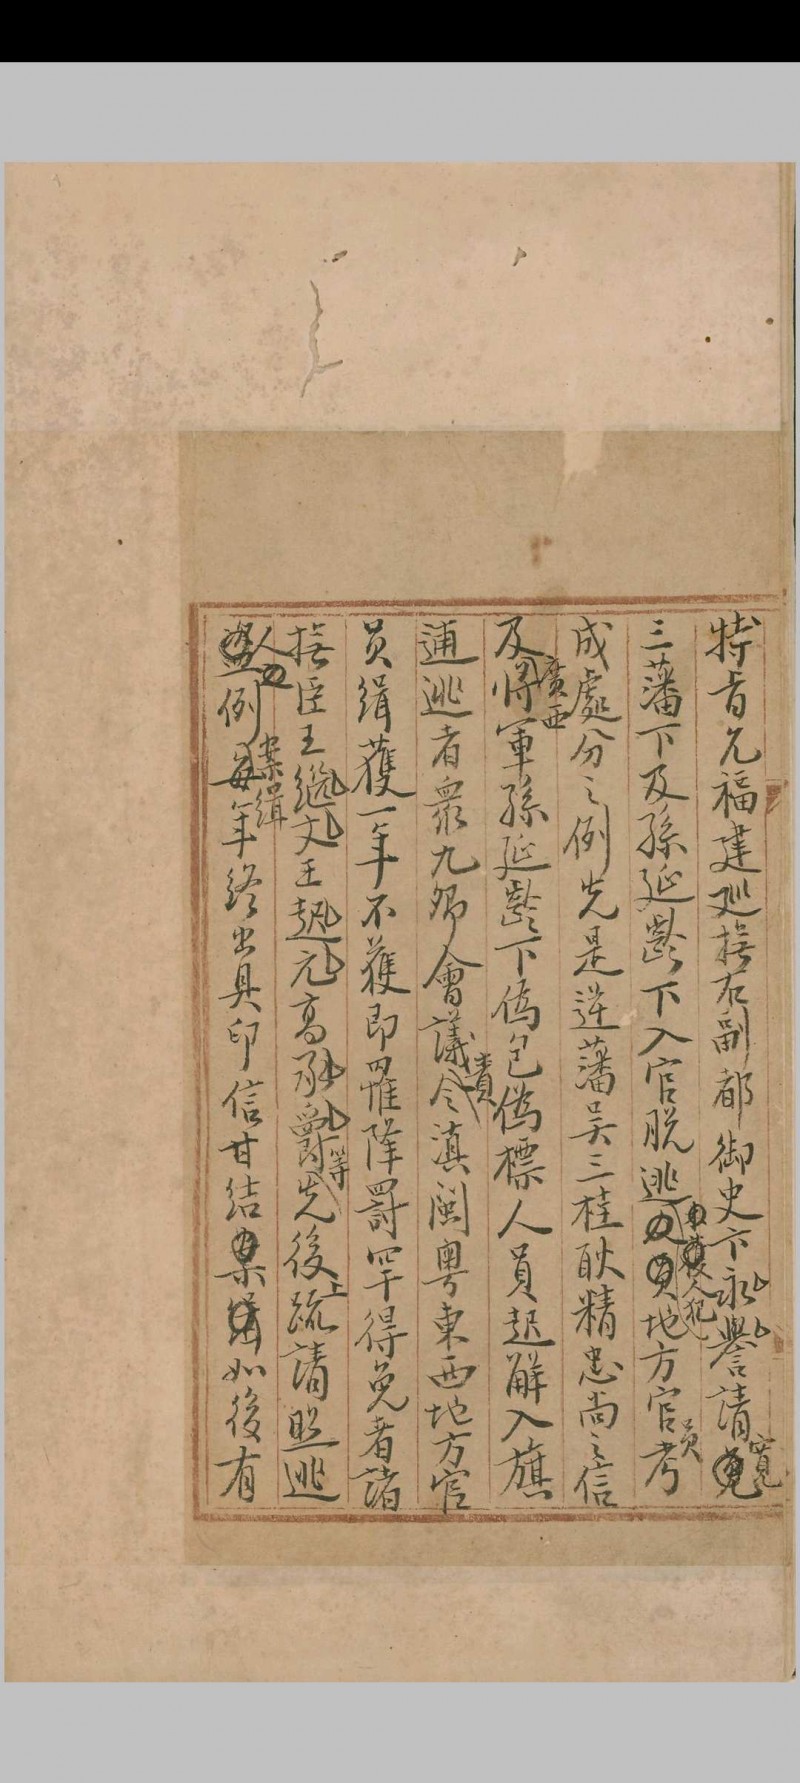 特旨允福建巡撫右副都御史卞永譽請寬
三藩下及孫延齡下入官脫逃人犯地方官員考
成處分之例先是逆藩吳三桂耿精忠尚之信
及廣西將軍孫延齡下偽包偽標人員起解入旗
逋逃者衆九卿會議責令滇閩粵東西地方官
員緝獲一年不獲即罹降罰罕得免者諸
撫臣王繼文王起元高承爵等先後上疏請照逃
人例案緝年終出具印信甘結如後有